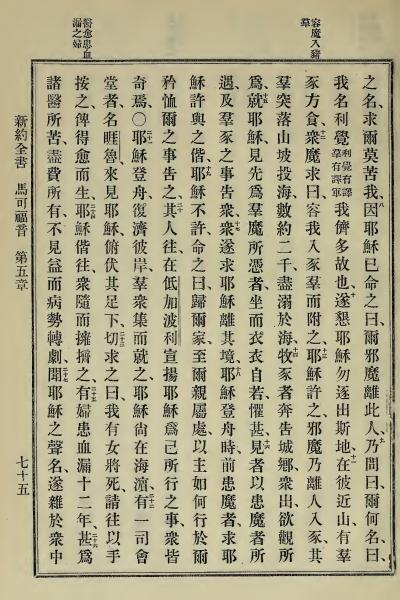 容魔入豬
羣
醫愈患血
漏之婦
之名求爾莫苦我八因耶穌已命之曰爾邪魔離此人九乃問曰爾何名曰
我名利覺利覺有譯羣有譯軍我儕多故也十遂懇耶穌勿逐出斯地十一在彼近山有羣
豕方食十二衆魔求曰容我入豕羣而附之十三耶穌許之邪魔乃離人入豕其
羣突落山坡投海數約二千盡溺於海十四牧豕者奔告城鄉衆出欲觀所
爲十五就耶穌見先爲羣魔所憑者坐而衣衣自若懼甚十六見者以患魔者所
遇及羣豕之事告衆十七衆遂求耶穌離其境十八耶穌登舟時前患魔者求耶
穌許與之偕十九耶穌不許命之曰歸爾家至爾親屬處以主如何行於爾
矜恤爾之事告之二十其人往在低加波利宣揚耶穌爲己所行之事衆皆
奇焉〇二十一耶穌登舟復濟彼岸羣衆集而就之耶穌尚在海濱二十二有一司會
堂者名睚魯來見耶穌俯伏其足下二十三切求之曰我有女將死請往以手
按之俾得愈而生二十四耶穌偕往衆隨而擁擠之二十五有婦患血漏十二年二十六甚爲
諸醫所苦盡費所有不見益而病勢轉劇二十七聞耶穌之聲名遂雜於衆中
新約全書　馬可福音　第五章　七十五